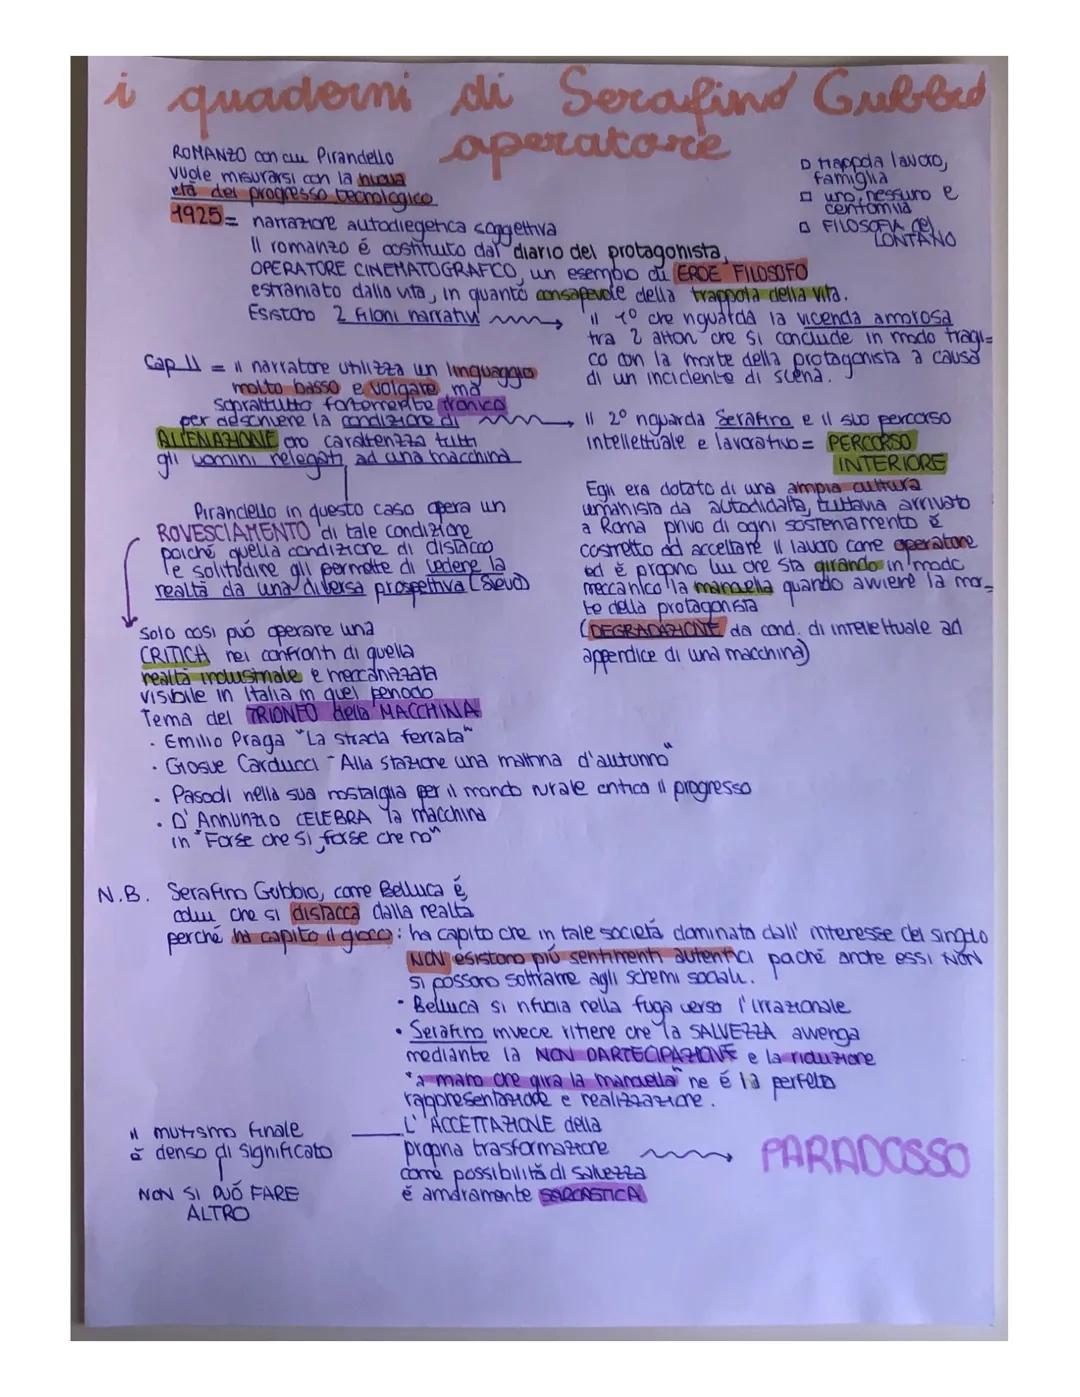 i quaderni di Serafino Gubbio
operatore
ROMANZO con cui Pirandello
vuole misurarsi con la nuova
età del progresso tecnologico
□ trappola lavoro,
famiglia
□ uno, nessuno e
centomila
□ FILOSOFIA del
LONTANO
1925 = narrazione autodiegetica soggettiva
Il romanzo é costituito dal diario del protagonista,
OPERATORE CINEMATOGRAFICO, un esempio di EROE FILOSOFO
estraniato dalla vita, in quanto consapevole della trappola della vita.
Esistono 2 filoni narrativi
il 1° che riguarda la vicenda amorosa
tra 2 attori che si conclude in modo tragi=
co con la morte della protagonista a causa
di un incidente di scena.
Cap II = il narratore utilizza un linguaggio
molto basso e volgare ma
soprattutto fortemente ironico
per descrivere la condizione di
ALIENAZIONE che caratterizza tutti
gli uomini relegati ad una macchina
il 2° riguarda Serafino e il suo percorso
intellettuale e lavorativo = PERCORSO
INTERIORE
Egli era dotato di una ampia cultura
umanista da autodidatta, tuttavia arrivato
a Roma privo di ogni sostentamento è
costretto ad accettare il lavoro come operatore
ed è proprio lui che sta girando in modo
meccanico la manovella quando avviene la mor=
te della protagonista
(DEGRADAZIONE da cond. di intellettuale ad
appendice di una macchina)
Pirandello in questo caso opera un
ROVESCIAMENTO di tale condizione
poiché quella condizione di distacco
e solitudine gli permette di vedere la
realtà da una diversa prospettiva (Svevo)
Solo così può operare una
CRITICA nei confronti di quella
realtà industriale e meccanizzata
visibile in Italia in quel periodo
Tema del TRIONFO della MACCHINA
· Emilio Praga "La strada ferrata"
· Giosue Carducci "Alla stazione una mattina d'autunno"
· Pascoli nella sua nostalgia per il mondo rurale critica il progresso
· D'Annunzio CELEBRA la macchina
in "Forse che sì forse che no"
N.B. Serafino Gubbio, come Belluca é
colui che si distacca dalla realtà
perché ha capito il gioco: ha capito che in tale società dominata dall' interesse del singolo
NON esistono più sentimenti autentici poiché anche essi NON
si possono sottrarre agli schemi sociali.
· Belluca si rifugia nella fuga verso l'irrazionale
· Serafino invece ritiene che la SALVEZZA avvenga
mediante la NON PARTECIPAZIONE e la riduzione
"a mano che gira la manovella" ne é la perfetta
rappresentazione e realizzazione.
il mutismo finale
è denso di significato
NON SI PUÓ FARE
ALTRO
L'ACCETTAZIONE della
propria trasformazione
come possibilità di salvezza
é amaramente SARCASTICA
PARADOSSO